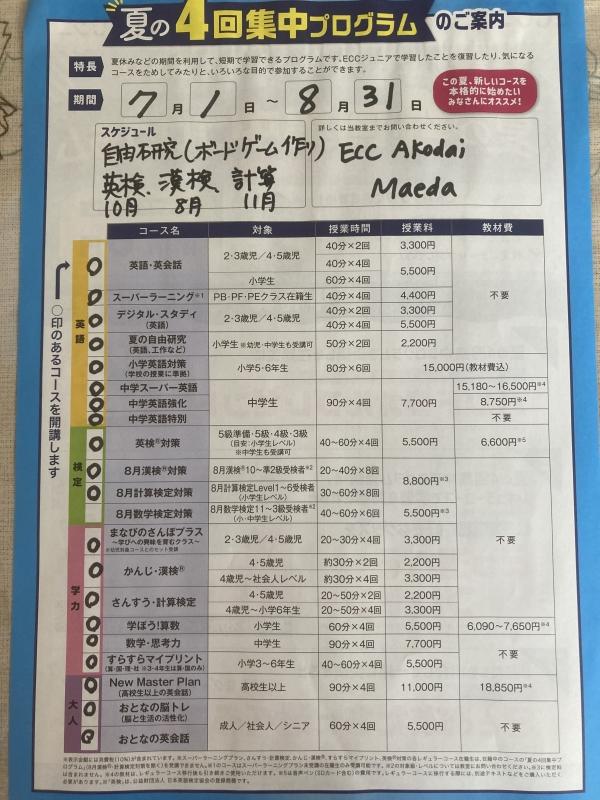 夏の4回集中プログラムのご案内
特長 夏休みなどの期間を利用して、短期で学習できるプログラムです。ECCジュニアで学習したことを復習したり、気になる
コースをためしてみたりと、いろいろな目的で参加することができます。
期間 7月1日～8月31日
この夏、新しいコースを
本格的に始めたい
みなさんにオススメ!
スケジュール
自由研究(ボードゲーム作り)
英検、漢検、計算
10月 8月 11月
詳しくは当教室までお問い合わせください。
ECC Akodai
Maeda
○印のあるコースを開講します
コース名 対象 授業時間 授業料 教材費
英語
○ 英語・英会話 2・3歳児/4・5歳児 40分×2回 3,300円 不要
40分×4回 5,500円
小学生 60分×4回
○ スーパーラーニング※1 PB・PF・PEクラス在籍生 40分×4回 4,400円
○ デジタル・スタディ 2・3歳児/4・5歳児 40分×2回 3,300円
(英語) 40分×4回 5,500円
○ 夏の自由研究 小学生 ※幼児・中学生も受講可 50分×2回 2,200円
(英語、工作など)
○ 小学英語対策 小学5・6年生 80分×6回 15,000円(教材費込)
(学校の授業に準拠)
○ 中学スーパー英語 中学生 90分×4回 7,700円 15,180～16,500円※4
○ 中学英語強化 8,750円※4
○ 中学英語特別 不要
検定
○ 英検®対策 5級準備・5級・4級・3級 40～60分×4回 5,500円 6,600円※5
(目安:小学生レベル)
※中学生も受講可
○ 8月漢検®対策 8月漢検®10～準2級受検者※2 20～40分×8回 8,800円※3 不要
○ 8月計算検定対策 8月計算検定Level1～6受検者 30～60分×8回
(小学生レベル)
8月数学検定対策 8月数学検定11～3級受検者※2 40～60分×6回 5,500円※3
(小・中学生レベル)
学力
○ まなびのさんぽプラス 2・3歳児/4・5歳児 20～30分×4回 3,300円
～学びへの興味を育むクラス～
○ かんじ・漢検® 4・5歳児 約30分×2回 2,200円
4歳児～社会人レベル 約30分×4回 3,300円
○ さんすう・計算検定 4・5歳児 20～50分×2回 2,200円
4歳児～小学6年生 20～50分×4回 3,300円
○ 学ぼう!算数 小学生 60分×4回 5,500円 6,090～7,650円※4
○ 数学・思考力 中学生 90分×4回 7,700円 不要
○ すらすらマイプリント 小学3～6年生 40～60分×4回 5,500円
(算・国・理・社 ※3・4年生は算・国のみ)
大人
○ New Master Plan 高校生以上 90分×4回 11,000円 18,850円※4
(高校生以上の英会話)
○ おとなの脳トレ 成人/社会人/シニア 60分×4回 5,500円 不要
(脳と生活の活性化)
○ おとなの英会話